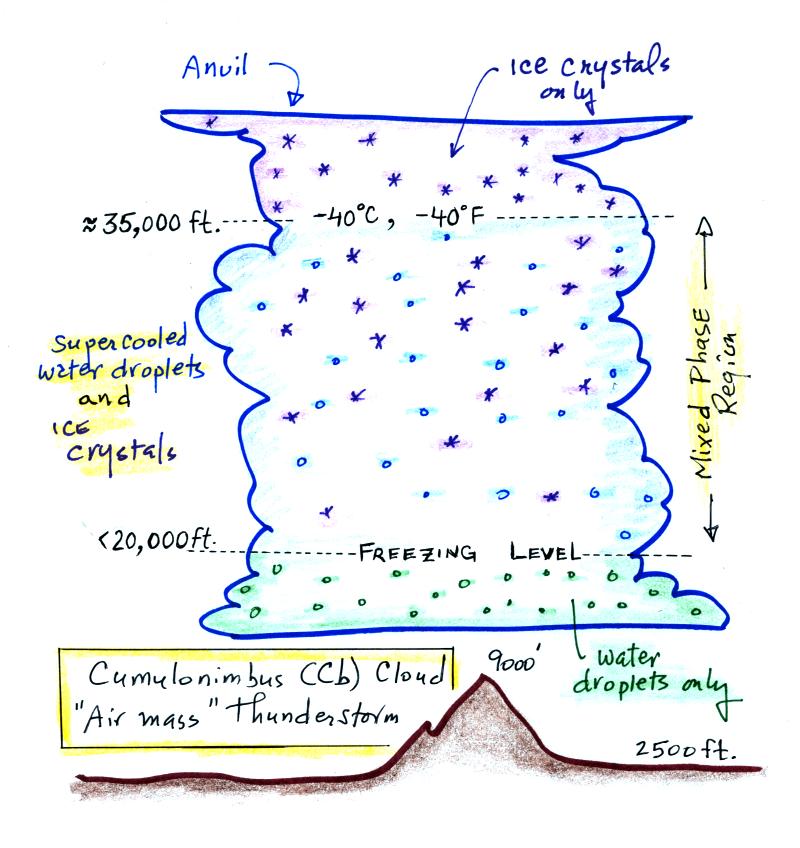 Anvil
ice crystals
only
≈ 35,000 ft.
-40°C, -40°F
Supercooled
water droplets
and
ice
crystals
Mixed Phase
Region
<20,000 ft.
FREEZING LEVEL
Cumulonimbus (Cb) Cloud
"Air mass" Thunderstorm
9000'
water
droplets only
2500 ft.